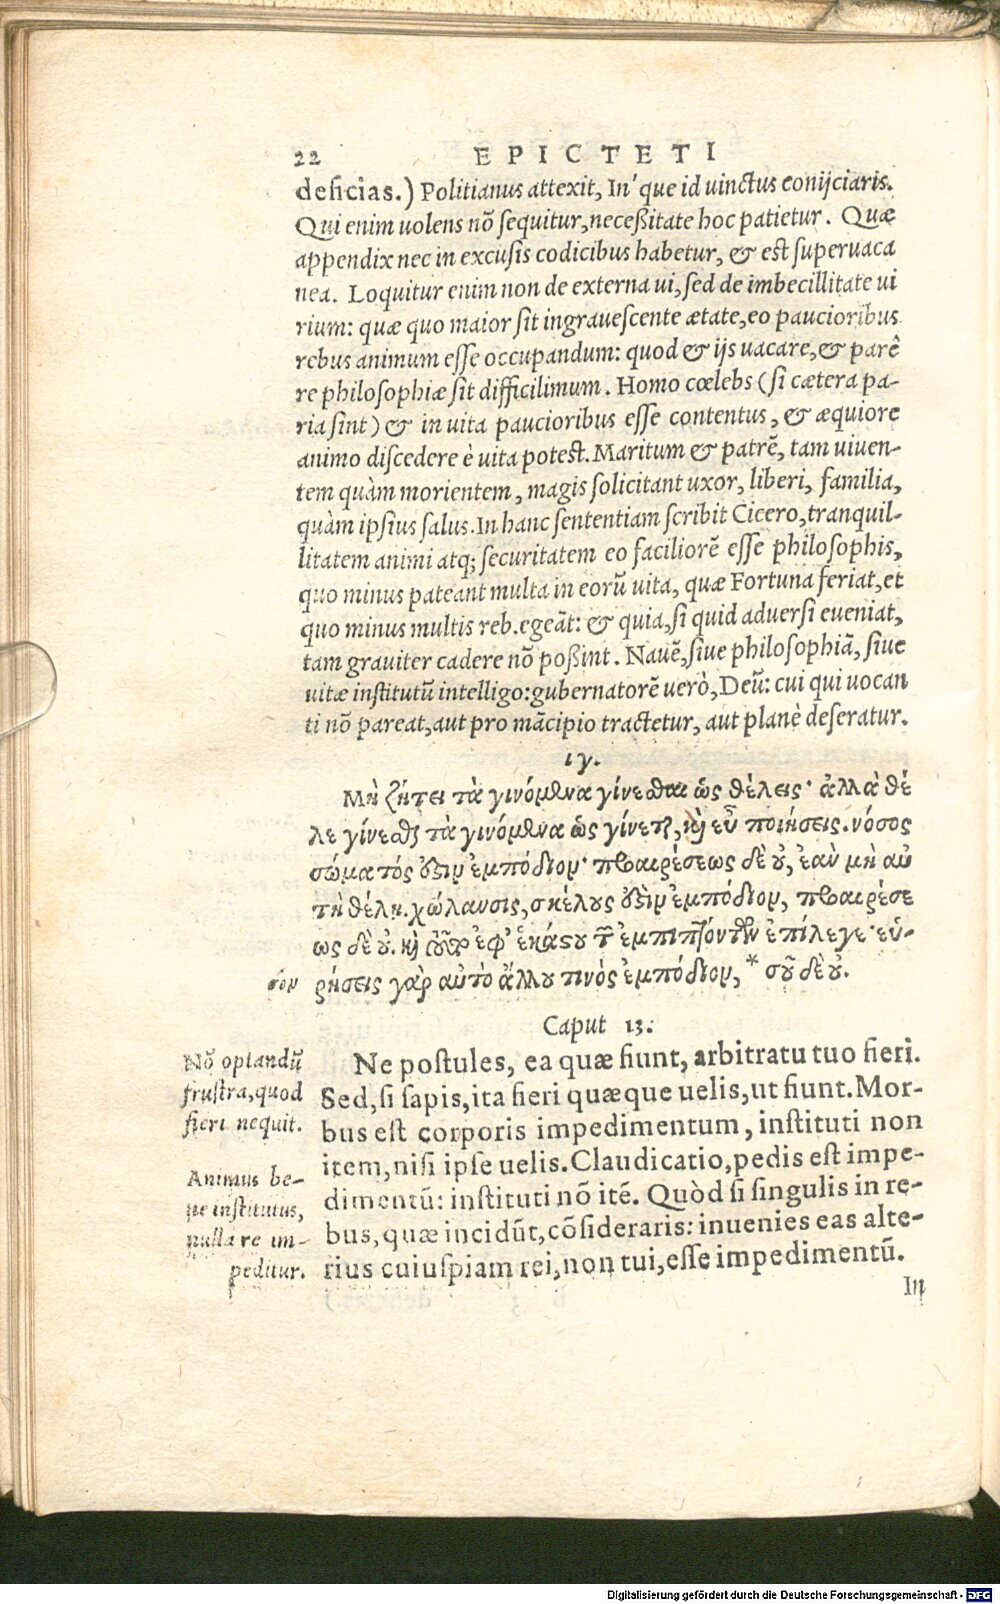 22 EPICTETI
deficias.) Politianus attexit, In'que id uinctus conijciaris.
Qui enim uolens nõ sequitur, necessitate hoc patietur. Quæ
appendix nec in excusis codicibus habetur, & est superuaca
nea. Loquitur enim non de externa ui, sed de imbecillitate ui
rium: quæ quo maior sit ingrauescente ætate, eo paucioribus
rebus animum esse occupandum: quod & ijs uacare, & parē
re philosophiæ sit difficilimum. Homo cœlebs (si cætera pa-
ria sint) & in uita paucioribus esse contentus, & æquiore
animo discedere è uita potest. Maritum & patrẽ, tam uiuen-
tem quàm morientem, magis solicitant uxor, liberi, familia,
quàm ipsius salus. In hanc sententiam scribit Cicero, tranquil-
litatem animi atq; securitatem eo faciliorẽ esse philosophis,
quo minus pateant multa in eorũ uita, quæ Fortuna feriat, et
quo minus multis reb. egeãt: & quia, si quid aduersi eueniat,
tam grauiter cadere nõ possint. Nauẽ, siue philosophiã, siue
uitæ institutũ intelligo: gubernatorẽ uerò, Deũ: cui qui uocan
ti nõ pareat, aut pro mãcipio tractetur, aut planè deseratur.
ιγ.
Μὴ ζήτει τὰ γινόμενα γίνεσθαι ὡς θέλεις· ἀλλὰ θέ
λε γίνεσθαι τὰ γινόμενα ὡς γίνεται, καὶ εὖ ποιήσεις. νόσος
σώματός ὅξιν ἐμπόδιον· προαιρέσεως δὲ οὐ, ἐὰν μὴ αὐ
τὴ θέλῃ. χώλανσις, σκέλους ὅξιν ἐμπόδιον, προαιρέσε
ως δὲ οὐ. καὶ τοῦτο ἐφ' ἑκάστου τῶν ἐμπιπτόντων ἐπίλεγε· εὑ-
ρήσεις γὰρ αὐτὸ ἄλλου τινὸς ἐμπόδιον, * σοῦ δὲ οὐ.
σὸν
Caput 13.
Nõ optandũ
frustra, quod
fieri nequit.
Animus be-
ne institutus,
nulla re im-
peditur.
Ne postules, ea quæ fiunt, arbitratu tuo fieri.
Sed, si sapis, ita fieri quæque uelis, ut fiunt. Mor-
bus est corporis impedimentum, instituti non
item, nisi ipse uelis. Claudicatio, pedis est impe-
dimentũ: instituti nõ itẽ. Quòd si singulis in re-
bus, quæ incidũt, cõsideraris: inuenies eas alte-
rius cuiuspiam rei, non tui, esse impedimentũ.
In
Digitalisierung gefördert durch die Deutsche Forschungsgemeinschaft - DFG